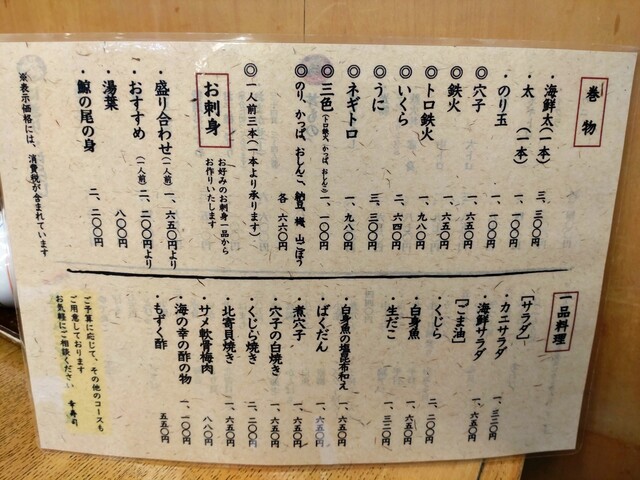 巻物
・海鮮太(一本) 三、三〇〇円
・太 (一本) 一、一〇〇円
・のり玉 一、一〇〇円
◎穴子 一、六五〇円
◎鉄火 一、六五〇円
◎トロ鉄火 一、九八〇円
◎いくら 二、六四〇円
◎うに 三、三〇〇円
◎ネギトロ 一、九八〇円
◎三色(トロ鉄火、かっぱ、おしんこ) 一、一〇〇円
◎のり、かっぱ、おしんこ、納豆、梅、山ごぼう 各 六六〇円
◎一人前三本(一本より承ります)
お刺身
お好みのお刺身一品から
お作りいたします
・盛り合わせ(一人前) 一、六五〇円より
・おすすめ(一人前) 二、二〇〇円より
・湯葉 八〇〇円
・鯨の尾の身 二、二〇〇円
※表示価格には、消費税が含まれています
一品料理
[サラダ]
・カニサラダ 一、三二〇円
・海鮮サラダ 一、六五〇円
[ごま油]
・くじら 二、二〇〇円
・白身魚 一、六五〇円
・生だこ 一、三二〇円
・白身魚の塩昆布和え 一、六五〇円
・ばくだん 一、六五〇円
・煮穴子 一、六五〇円
・穴子の白焼き 一、六五〇円
・くじら焼き 二、二〇〇円
・北寄貝焼き 一、六五〇円
・サメ軟骨梅肉 八八〇円
・海の幸の酢の物 一、一〇〇円
・もずく酢 五五〇円
ご予算に応じて、その他のコースも
ご用意しております
お気軽にご相談ください 幸寿司